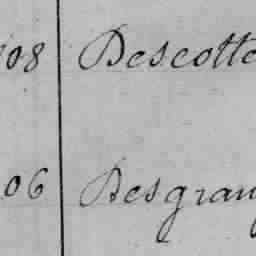 08 Descotte
06 Desgran